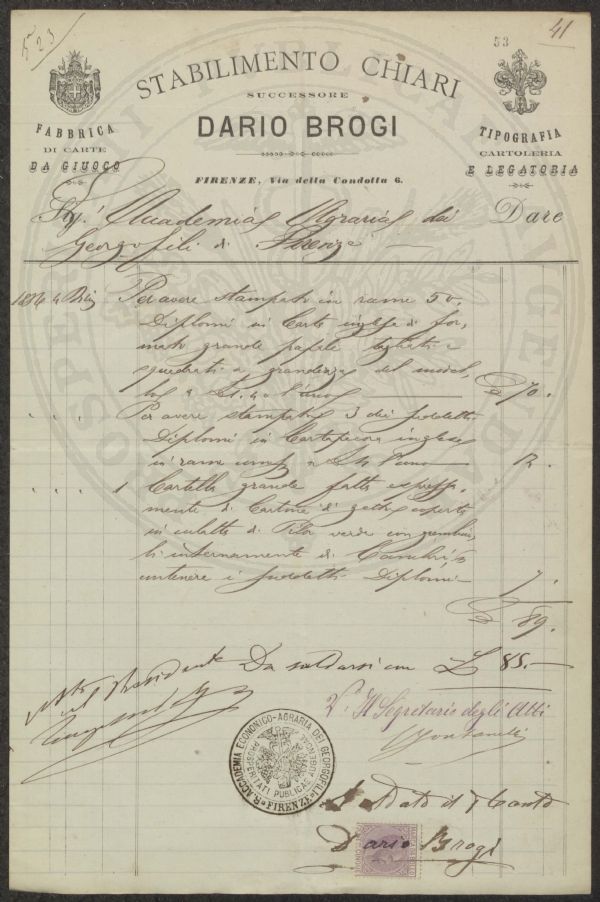 5a 23
41
53
STABILIMENTO CHIARI
SUCCESSORE
DARIO BROGI
FABBRICA
DI CARTE
DA GIUOCO
TIPOGRAFIA
CARTOLERIA
E LEGATORIA
FIRENZE, Via della Condotta 6.
Accademia Agraria dei Dare
Georgofili di Firenze
Per avere stampato in rame 50.
Diplomi in Carta inglese di for,
mato grande papale tagliati e
squadrati a grandezza del model,
70.
Per avere stampato 3 dei suddetti
Diplomi in Cartapecora inglese
in rame 12.
1 Cartella grande fatta espressa,
mente di Cartone di getto coperta
in culatta di Tela verde con
internamente di
contenere i suddetti Diplomi 7.
£ 89.
Visto il Presidente
Da saldarsi con £ 85.—
Vo. Il Segretario degli Atti
R. ACCADEMIA ECONOMICO-AGRARIA DEI GEORGOFILI
FIRENZE
PROSPERITATI PUBLICAE AUGENDAE
Saldato il Conto
Dario Brogi